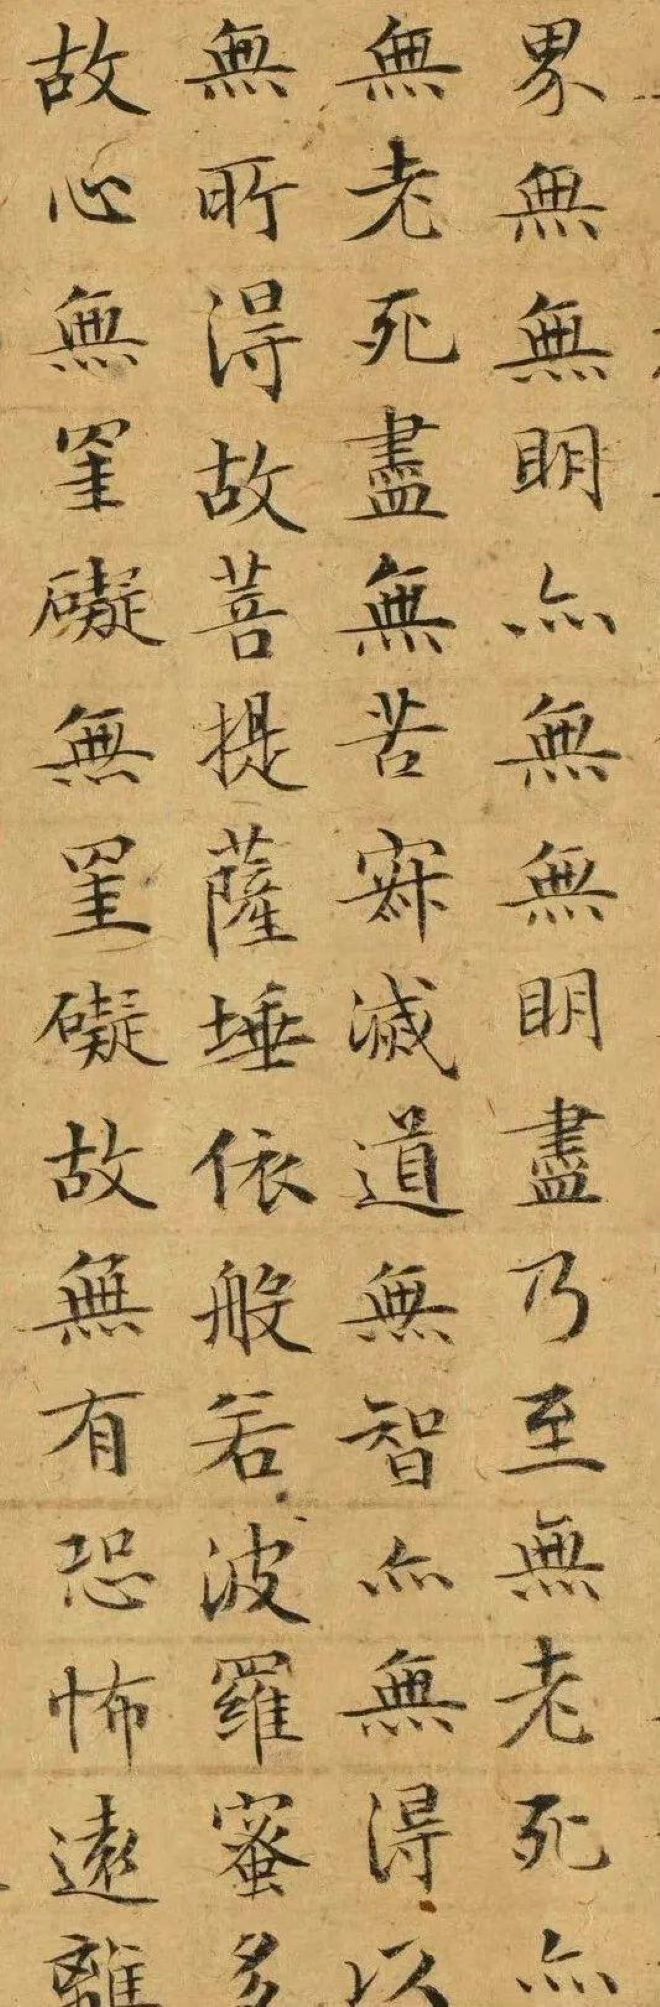 界無無明亦無無明盡乃至無老死亦
無老死盡無苦寂滅道無智亦無得以
無所得故菩提薩埵依般若波羅蜜多
故心無罣礙無罣礙故無有恐怖遠離